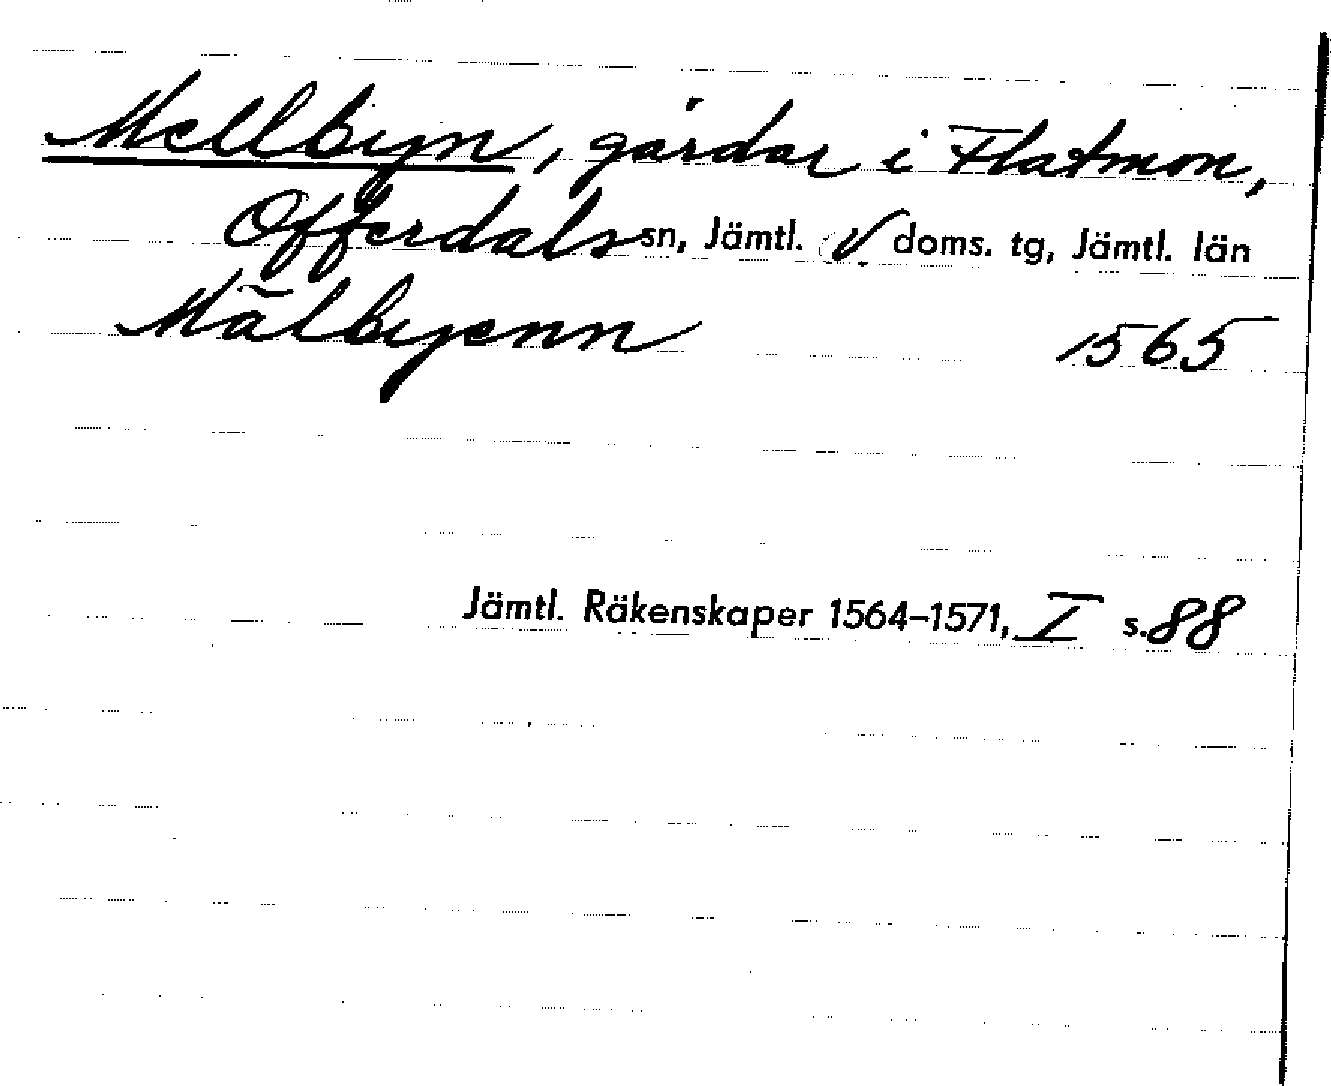 Mellbyn, gårdar i Flatmon,
Offerdals sn, Jämtl. V doms. tg, Jämtl. län
Mälbyenn 1565
Jämtl. Räkenskaper 1564-1571, I s. 88